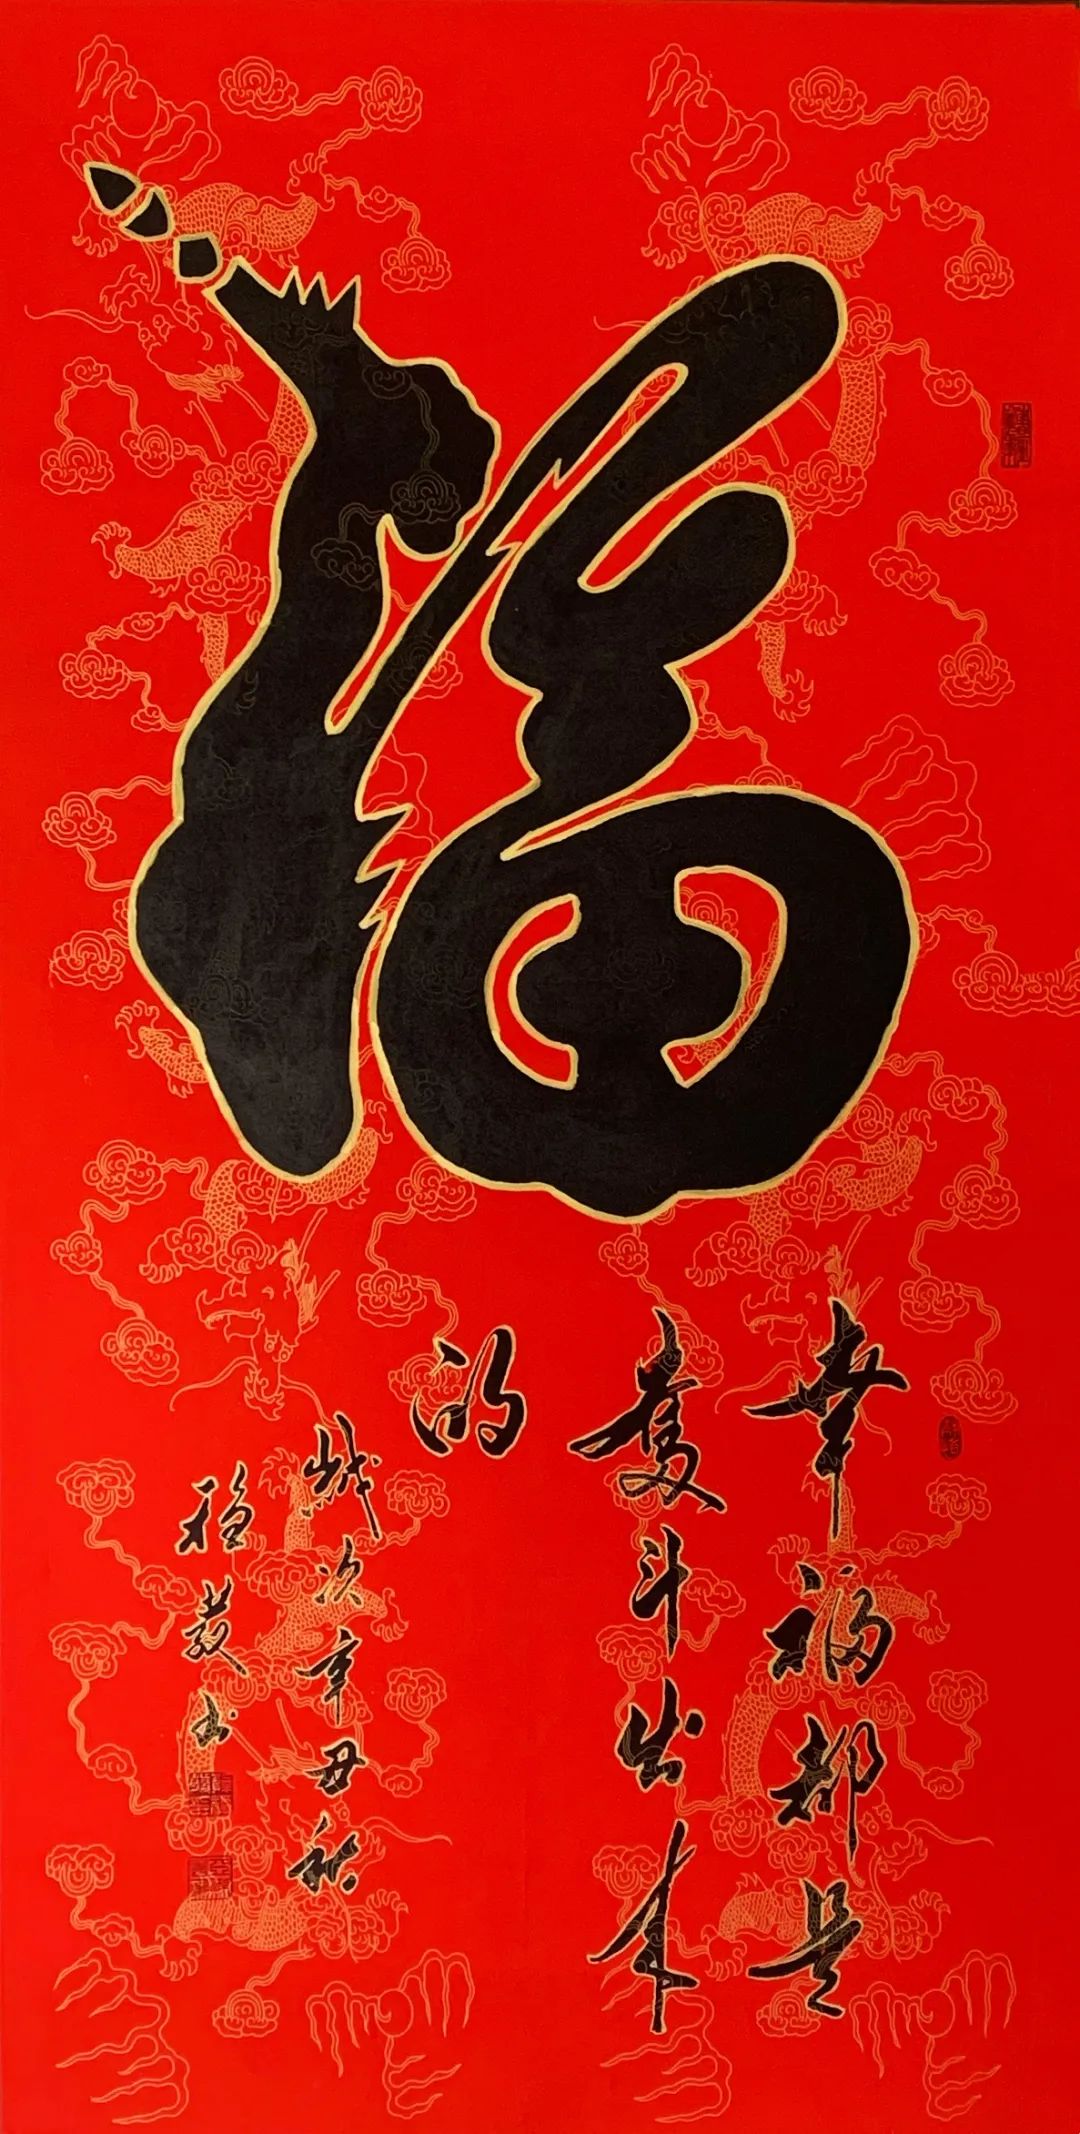 福
幸福都是
奋斗出来
的
岁次辛丑秋